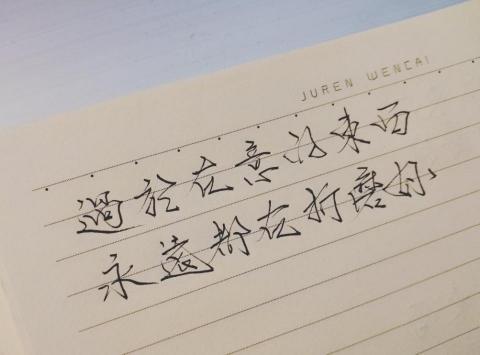 JUREN WENCAI
過於在意的東西
永遠都在折磨你